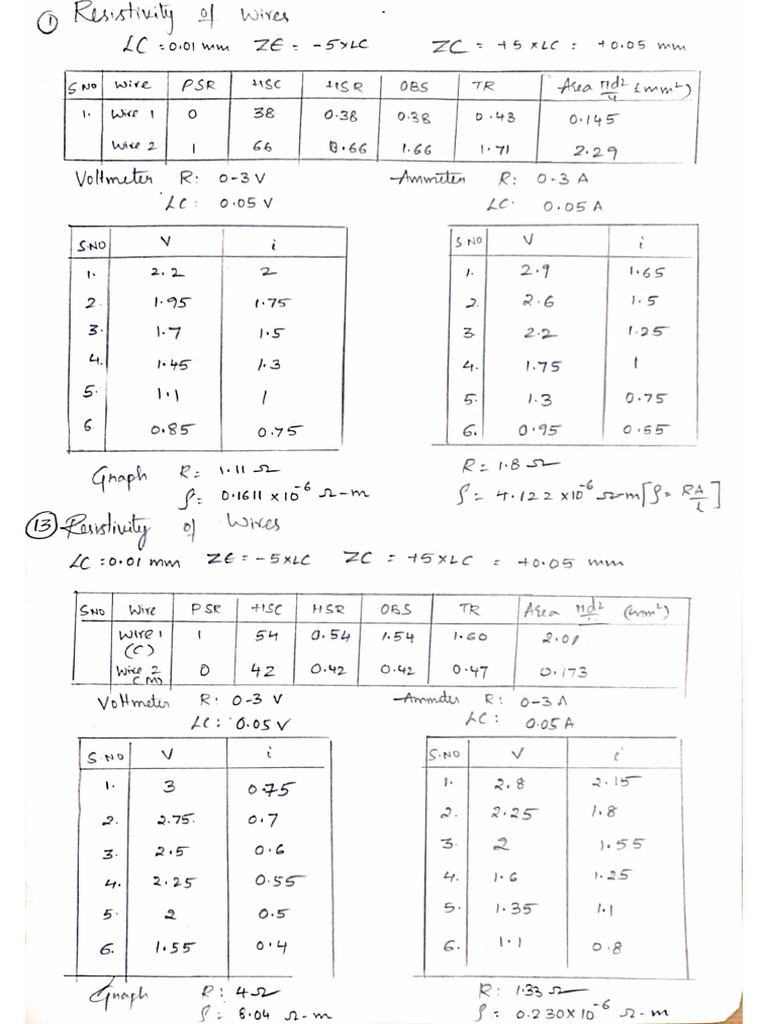 ① Resistivity of Wires
LC = 0.01 mm ZE = -5×LC ZC = +5×LC = +0.05 mm
S NO Wire PSR HSC HSR OBS TR Area πd²/4 (mm²)
1. Wire 1 0 38 0.38 0.38 0.43 0.145
Wire 2 1 66 0.66 1.66 1.71 2.29
Voltmeter R: 0-3 V Ammeter R: 0-3 A
LC: 0.05 V LC: 0.05 A
S.NO V i S NO V i
1. 2.2 2 1. 2.9 1.65
2. 1.95 1.75 2. 2.6 1.5
3. 1.7 1.5 3. 2.2 1.25
4. 1.45 1.3 4. 1.75 1
5. 1.1 1 5. 1.3 0.75
6. 0.85 0.75 6. 0.95 0.55
Graph R = 1.11 Ω R = 1.8 Ω
ρ = 0.1611 × 10⁻⁶ Ω-m ρ = 4.122 × 10⁻⁶ Ω m [ρ = RA/L]
⑬ Resistivity of Wires
LC = 0.01 mm ZE = -5×LC ZC = +5×LC = +0.05 mm
S NO Wire PSR HSC HSR OBS TR Area πd²/4 (mm²)
Wire 1 (C) 1 54 0.54 1.54 1.60 2.01
Wire 2 (M) 0 42 0.42 0.42 0.47 0.173
Voltmeter R: 0-3 V Ammeter R: 0-3 A
LC: 0.05 V LC: 0.05 A
S.NO V i S.NO V i
1. 3 0.75 1. 2.8 2.15
2. 2.75 0.7 2. 2.25 1.8
3. 2.5 0.6 3. 2 1.55
4. 2.25 0.55 4. 1.6 1.25
5. 2 0.5 5. 1.35 1.1
6. 1.55 0.4 6. 1.1 0.8
Graph R: 4 Ω R: 1.33 Ω
ρ = 8.04 Ω-m ρ = 0.230×10⁻⁶ Ω-m